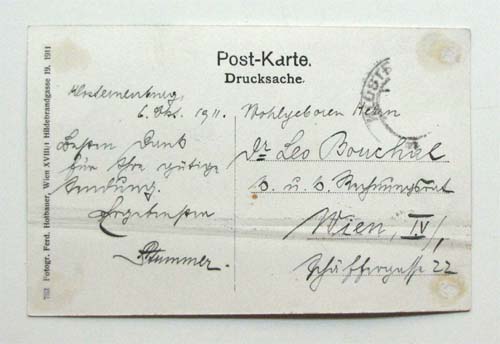 Post-Karte.
Drucksache.
Klosterneuburg,
6. Okt. 1911.
Besten Dank
für Ihre gütige
Sendung.
Ergebenster
Stummer.
Wohlgeboren Herrn
Dr Leo Bouchal
k. u. k. Rechnungsrat
Wien, IV/1,
Schäffergasse 22
783 Fotogr. Ferd. Hofbauer, Wien XVIII/1 Hildebrandgasse 19. 1911